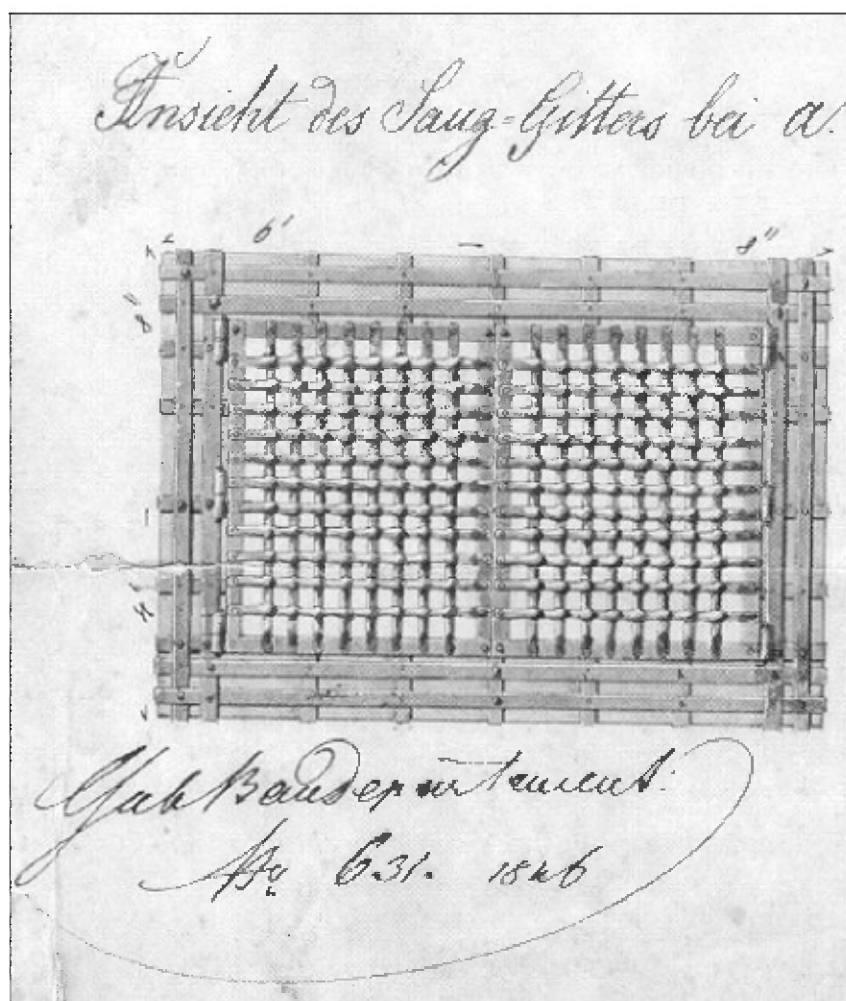 Ansicht des Saug=Gitters bei a.
6' – 8"
8"
4'
Baudepartement:
631. 1846